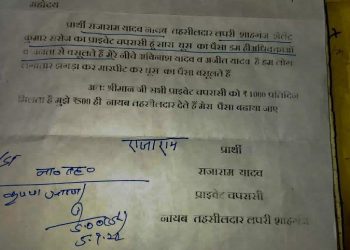 महोदय
प्रार्थी राजाराम यादव नायब तहसीलदार लपरी शाहगंज शैलेंद्र
कुमार सरोज का प्राइवेट चपरासी हूं सारा घूस का पैसा हम ही अधिवक्ताओं
व जनता से वसूलते है मेरे नीचे अविनाश यादव व अजीत यादव है हम लोग
लगातार झगडा कर मारपीट कर घूस का पैसा वसूलते हैं
अतः श्रीमान जी सभी प्राइवेट चपरासी को ₹ 1000 प्रतिदिन
मिलता है मुझे ₹500 ही नायब तहसीलदार देते हैं मेरा पैसा बनाया जाए
राजाराम
प्रार्थी
राजाराम यादव
प्राइवेट चपरासी
नायब तहसीलदार लपरी शाहगंज
ना० तह०
कृपया